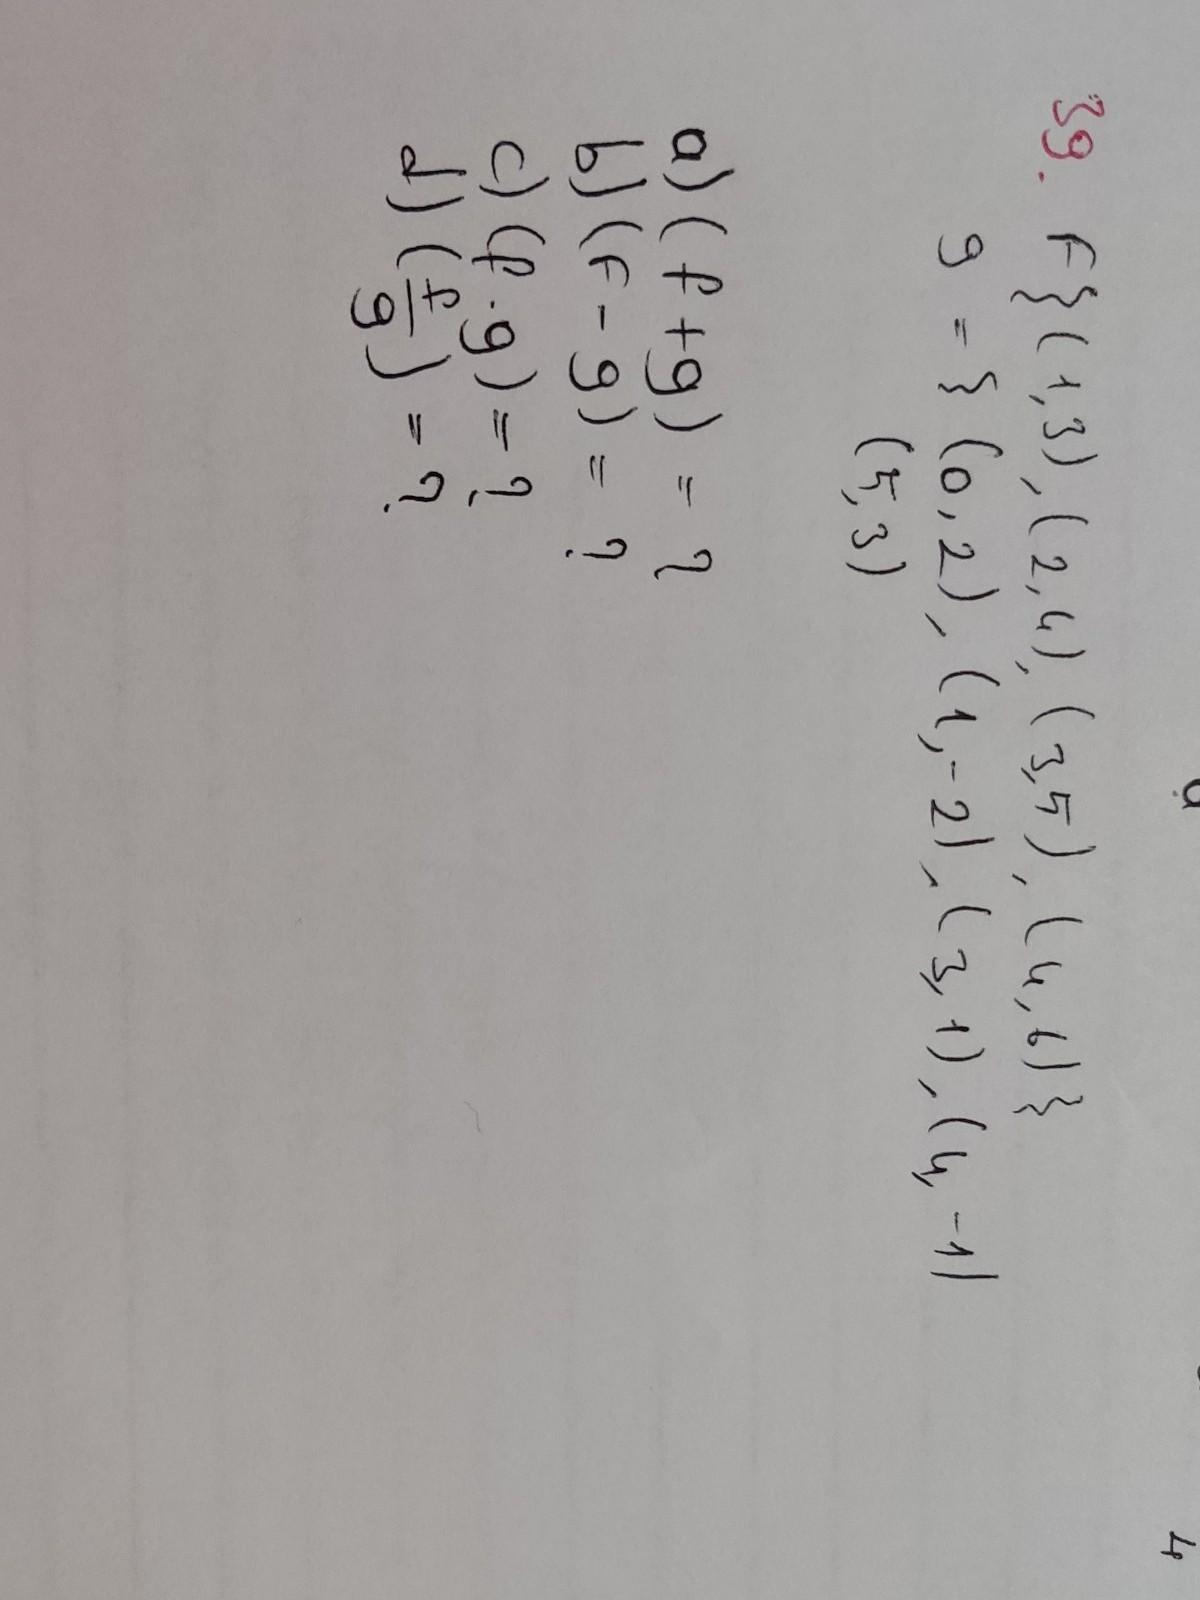 39. F{(1,3),(2,4),(3,5),(4,6)}
g = {(0,2),(1,-2),(3,1),(4,-1)
(5,3)
a) (f+g) = ?
b) (F-g) = ?
c) (f·g) = ?
d) (f/g) = ?
4